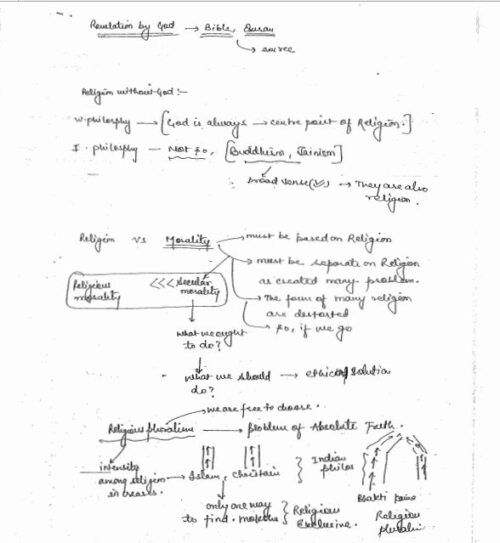 Revelation by God → Bible, Quran
→ source
Religion without God :-
W. philosphy → [God is always → centre point of Religion.]
I. philosphy — Not so, [Buddhism, Jainism]
broad sense → They are also
religion.
Religion vs Morality → must be based on Religion
→ must be separate on Religion
as created many problem.
→ The form of many religion
are destorted
→ so, if we go
Religious morality <<< Secular morality
What we ought
to do?
What we should → ethical solution
do?
→ we are free to choose.
Religious pluralism → problem of Absolute Faith.
intensity
among religion → Islam, christain } Indian
philos
increases.
only one way
to find { Religious
Exclusive.
Bhakti
Religion